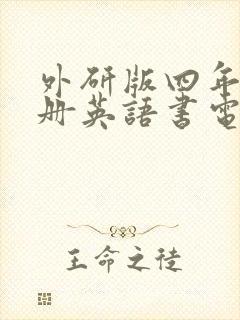 外研版四年
册英語書電
王命之徒